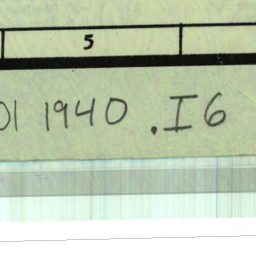 5
01 1940 .I6